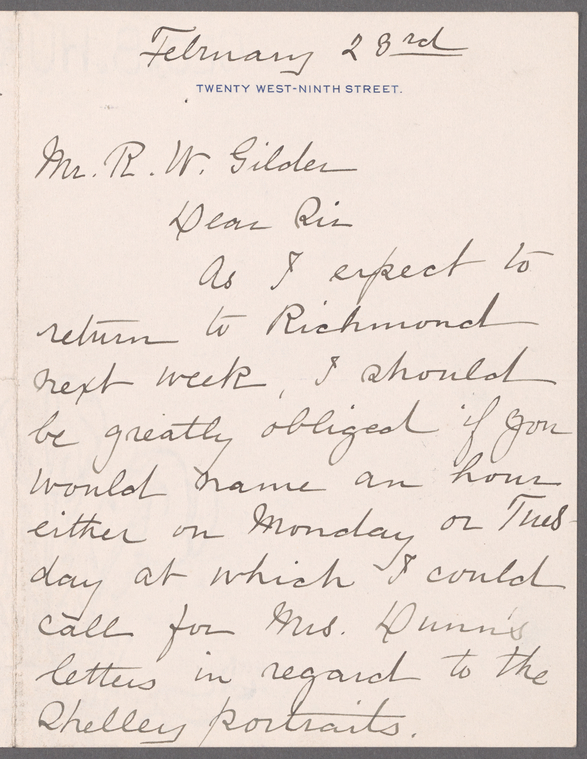 February 23rd
TWENTY WEST-NINTH STREET.
Mr. R. W. Gilder
Dear Sir
As I expect to
return to Richmond
next week, I should
be greatly obliged if you
would name an hour
either on Monday or Tues-
day at which I could
call for Mrs. Dunn's
letters in regard to the
Shelley portraits.